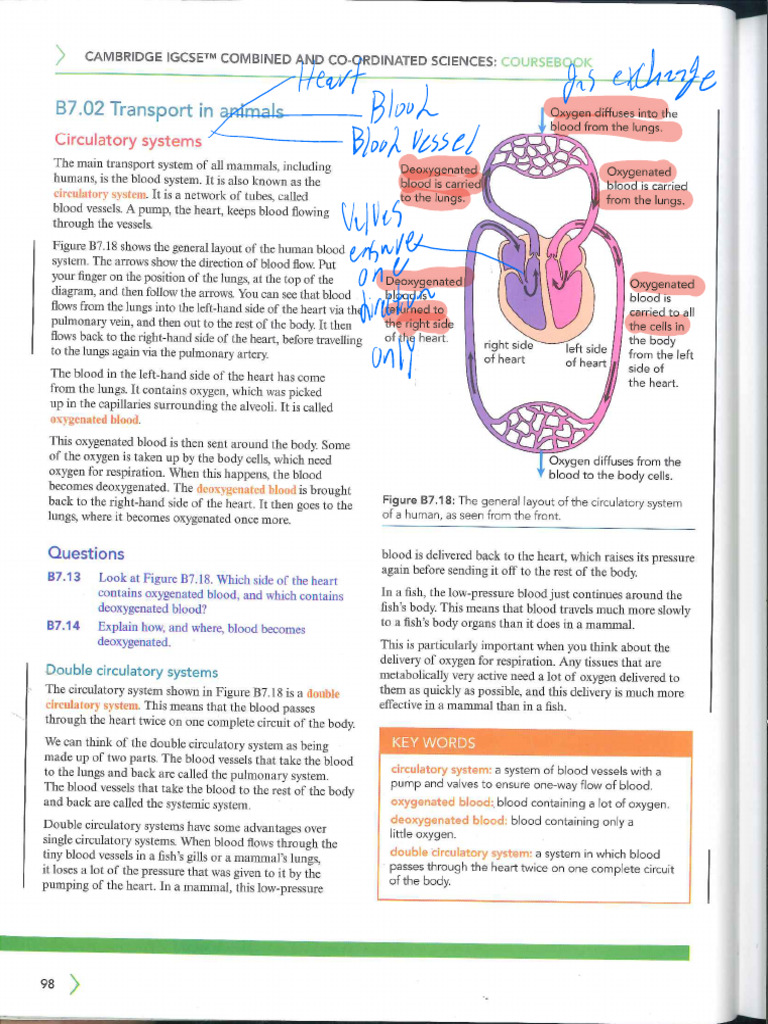 CAMBRIDGE IGCSE™ COMBINED AND CO-ORDINATED SCIENCES: COURSEBOOK
Heart
Blood
Blood vessel
gas exchange
B7.02 Transport in animals
Circulatory systems
The main transport system of all mammals, including
humans, is the blood system. It is also known as the
circulatory system. It is a network of tubes, called
blood vessels. A pump, the heart, keeps blood flowing
through the vessels.
Figure B7.18 shows the general layout of the human blood
system. The arrows show the direction of blood flow. Put
your finger on the position of the lungs, at the top of the
diagram, and then follow the arrows. You can see that blood
flows from the lungs into the left-hand side of the heart via the
pulmonary vein, and then out to the rest of the body. It then
flows back to the right-hand side of the heart, before travelling
to the lungs again via the pulmonary artery.
The blood in the left-hand side of the heart has come
from the lungs. It contains oxygen, which was picked
up in the capillaries surrounding the alveoli. It is called
oxygenated blood.
This oxygenated blood is then sent around the body. Some
of the oxygen is taken up by the body cells, which need
oxygen for respiration. When this happens, the blood
becomes deoxygenated. The deoxygenated blood is brought
back to the right-hand side of the heart. It then goes to the
lungs, where it becomes oxygenated once more.
Questions
B7.13 Look at Figure B7.18. Which side of the heart
contains oxygenated blood, and which contains
deoxygenated blood?
B7.14 Explain how, and where, blood becomes
deoxygenated.
Double circulatory systems
The circulatory system shown in Figure B7.18 is a double
circulatory system. This means that the blood passes
through the heart twice on one complete circuit of the body.
We can think of the double circulatory system as being
made up of two parts. The blood vessels that take the blood
to the lungs and back are called the pulmonary system.
The blood vessels that take the blood to the rest of the body
and back are called the systemic system.
Double circulatory systems have some advantages over
single circulatory systems. When blood flows through the
tiny blood vessels in a fish's gills or a mammal's lungs,
it loses a lot of the pressure that was given to it by the
pumping of the heart. In a mammal, this low-pressure
Oxygen diffuses into the
blood from the lungs.
Deoxygenated
blood is carried
to the lungs.
Oxygenated
blood is carried
from the lungs.
Valves
ensures
one
direction
only
Deoxygenated
blood is
returned to
the right side
of the heart.
Oxygenated
blood is
carried to all
the cells in
the body
from the left
side of
the heart.
right side
of heart
left side
of heart
Oxygen diffuses from the
blood to the body cells.
Figure B7.18: The general layout of the circulatory system
of a human, as seen from the front.
blood is delivered back to the heart, which raises its pressure
again before sending it off to the rest of the body.
In a fish, the low-pressure blood just continues around the
fish's body. This means that blood travels much more slowly
to a fish's body organs than it does in a mammal.
This is particularly important when you think about the
delivery of oxygen for respiration. Any tissues that are
metabolically very active need a lot of oxygen delivered to
them as quickly as possible, and this delivery is much more
effective in a mammal than in a fish.
KEY WORDS
circulatory system: a system of blood vessels with a
pump and valves to ensure one-way flow of blood.
oxygenated blood: blood containing a lot of oxygen.
deoxygenated blood: blood containing only a
little oxygen.
double circulatory system: a system in which blood
passes through the heart twice on one complete circuit
of the body.
98